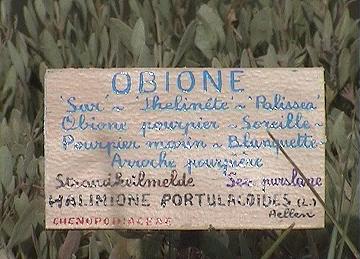 OBIONE
'Sar' ~ 'Thelinète ~ 'Palissea'
Obione pourpier ~ Soreille ~
Pourpier marin ~ Blanquette ~
Arroche pourpière
Strandkeilmelde Sea purslane
HALIMIONE PORTULACOIDES (L.)
Aellen
CHENOPODIACEAE